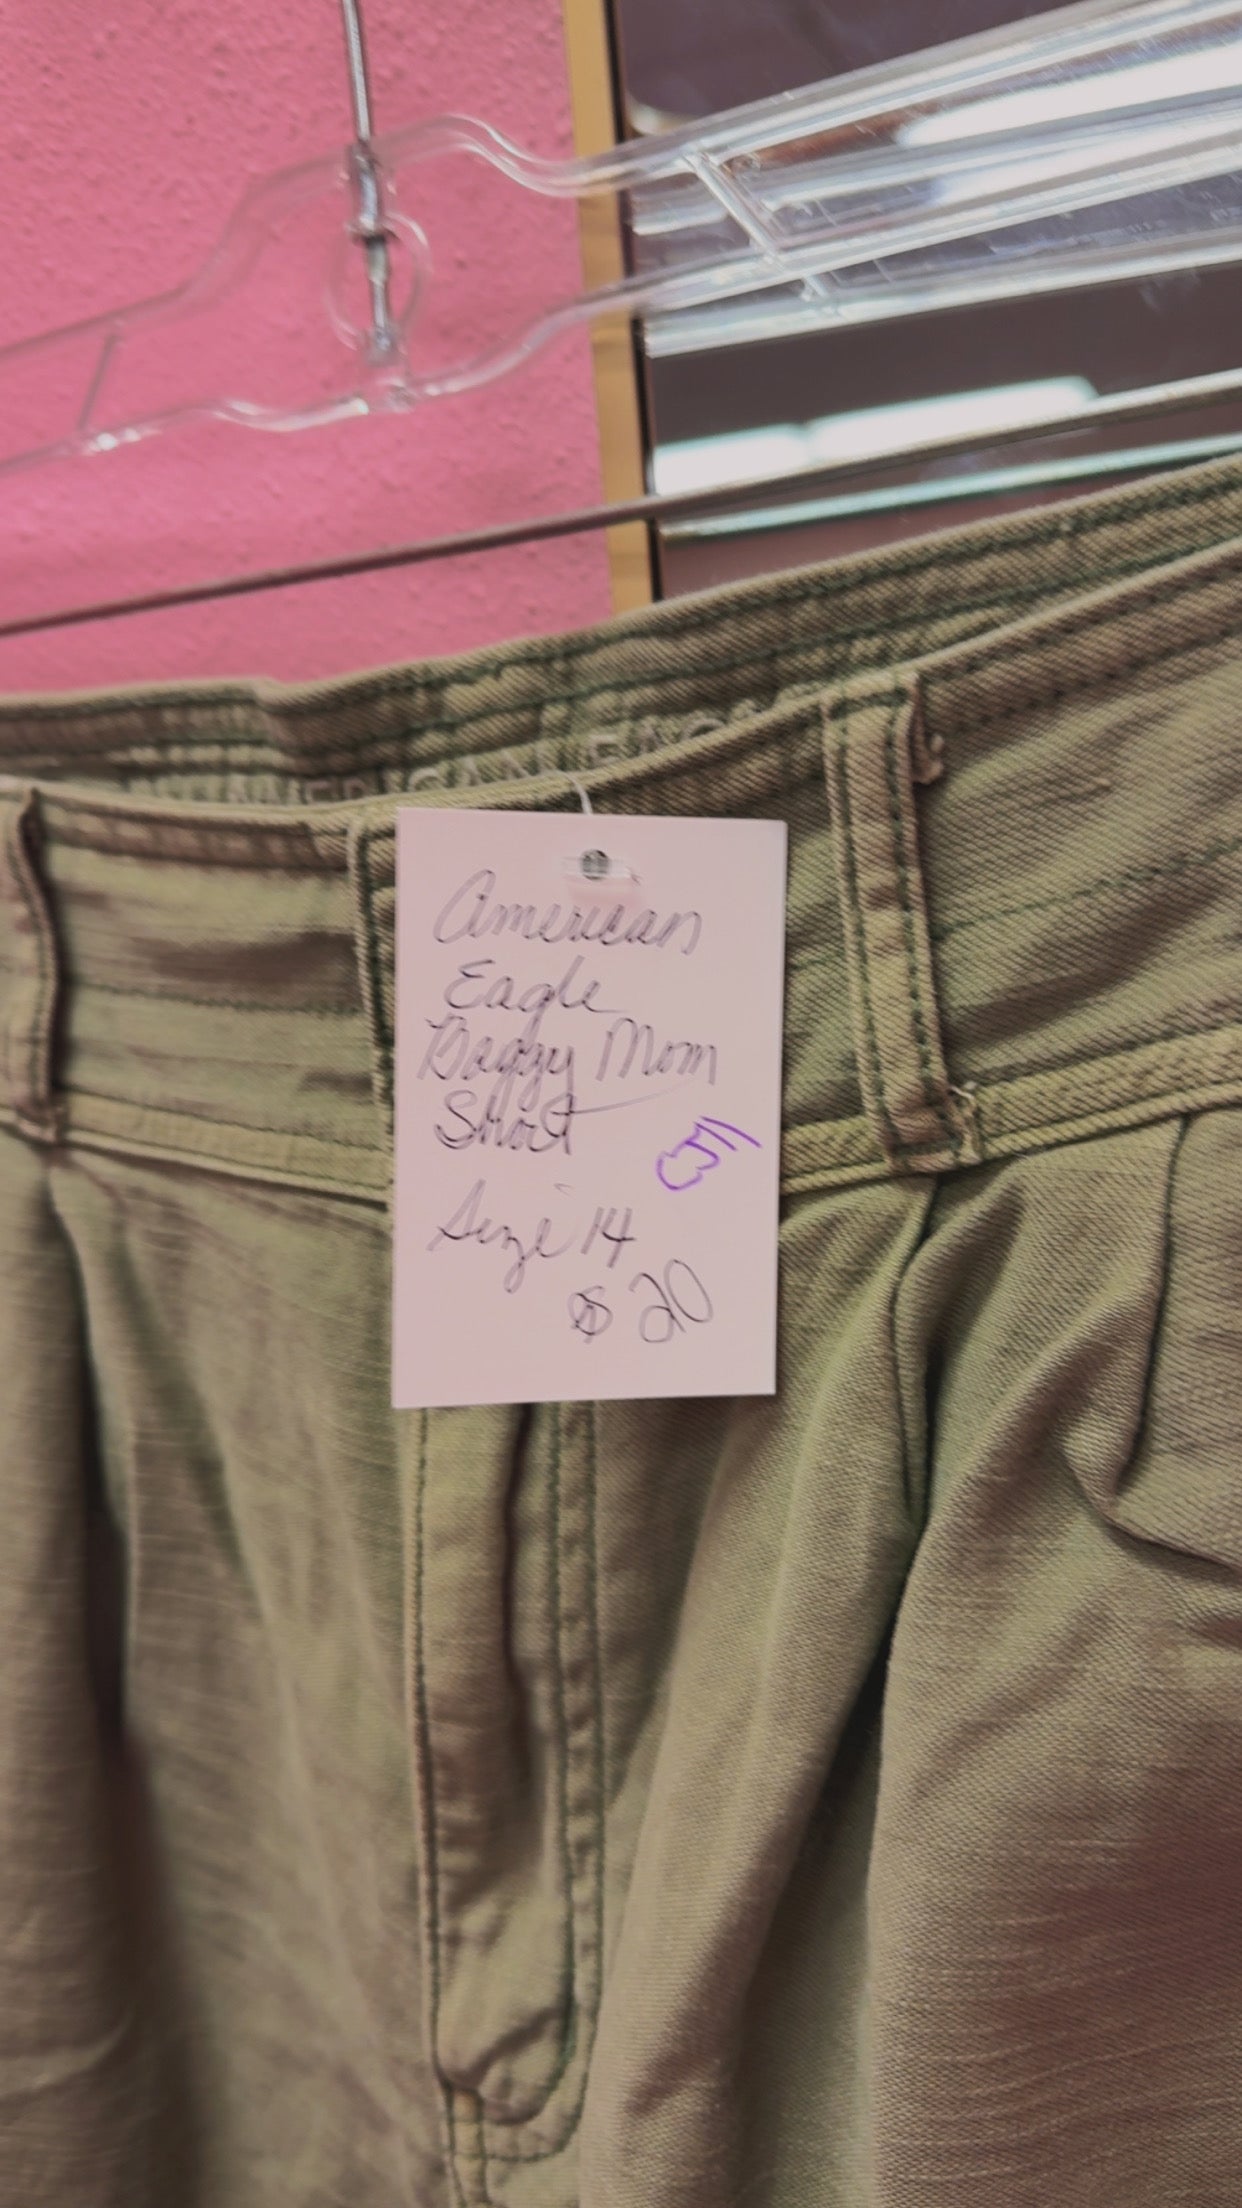 AMERICAN EAG
American
Eagle
Baggy Mom
Short
Size 14
$20